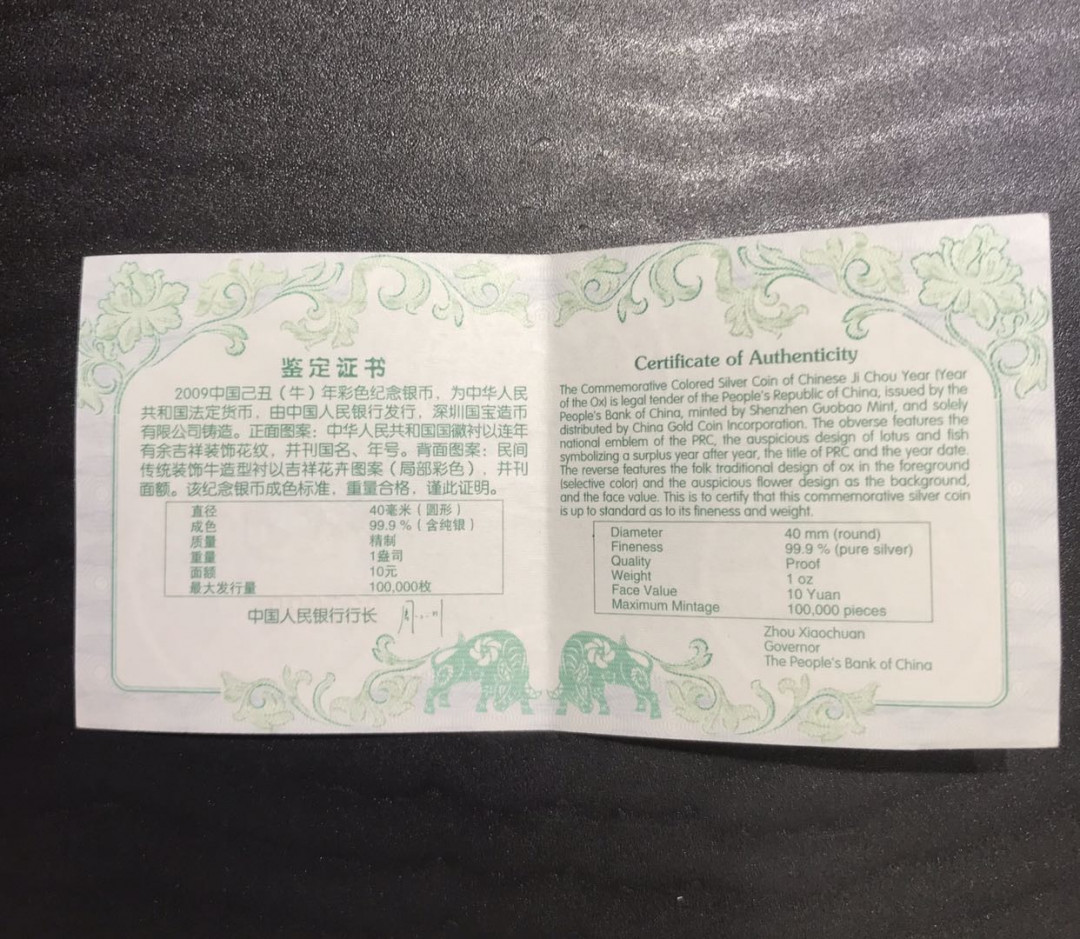 鉴定证书
2009中国己丑（牛）年彩色纪念银币，为中华人民
共和国法定货币，由中国人民银行发行，深圳国宝造币
有限公司铸造。正面图案：中华人民共和国国徽衬以连年
有余吉祥装饰花纹，并刊国名、年号。背面图案：民间
传统装饰牛造型衬以吉祥花卉图案（局部彩色），并刊
面额。该纪念银币成色标准，重量合格，谨此证明。
直径 40毫米（圆形）
成色 99.9％（含纯银）
质量 精制
重量 1盎司
面额 10元
最大发行量 100,000枚
中国人民银行行长
Certificate of Authenticity
The Commemorative Colored Silver Coin of Chinese Ji Chou Year (Year
of the Ox) is legal tender of the People's Republic of China, issued by the
People's Bank of China, minted by Shenzhen Guobao Mint, and solely
distributed by China Gold Coin Incorporation. The obverse features the
national emblem of the PRC, the auspicious design of lotus and fish
symbolizing a surplus year after year, the title of PRC and the year date.
The reverse features the folk traditional design of ox in the foreground
(selective color) and the auspicious flower design as the background,
and the face value. This is to certify that this commemorative silver coin
is up to standard as to its fineness and weight.
Diameter 40 mm (round)
Fineness 99.9 % (pure silver)
Quality Proof
Weight 1 oz
Face Value 10 Yuan
Maximum Mintage 100,000 pieces
Zhou Xiaochuan
Governor
The People's Bank of China